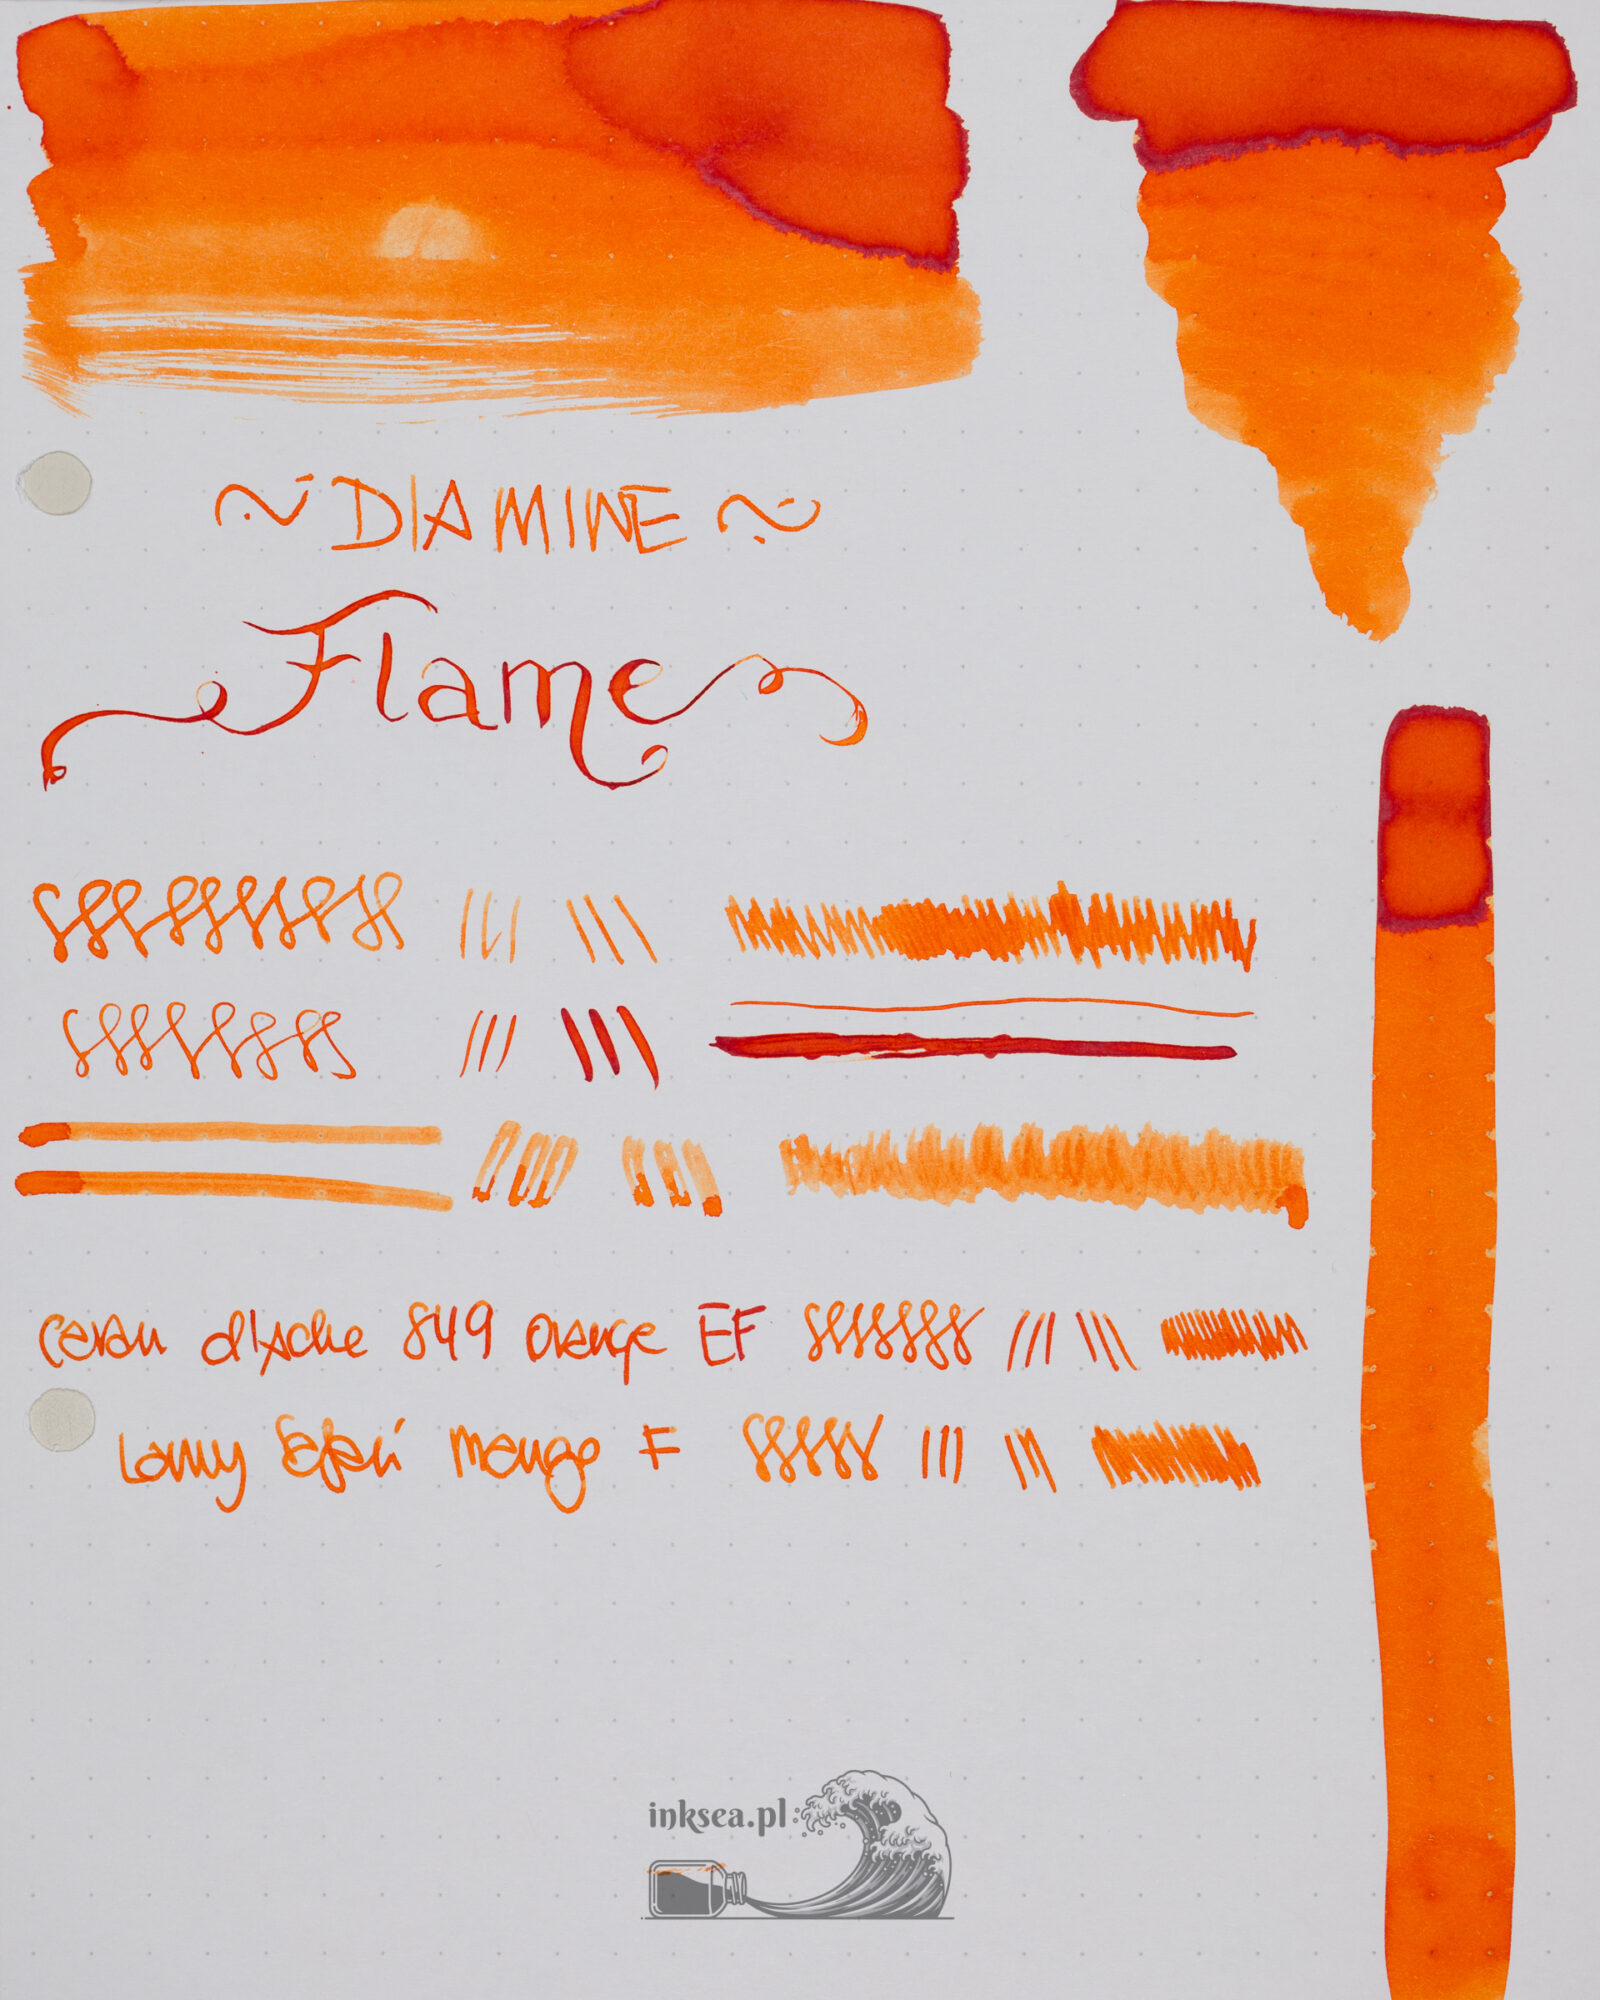 ~ DIAMINE ~
Flame
Caran d'Ache 849 orange EF
Lamy Safari mango F
inksea.pl